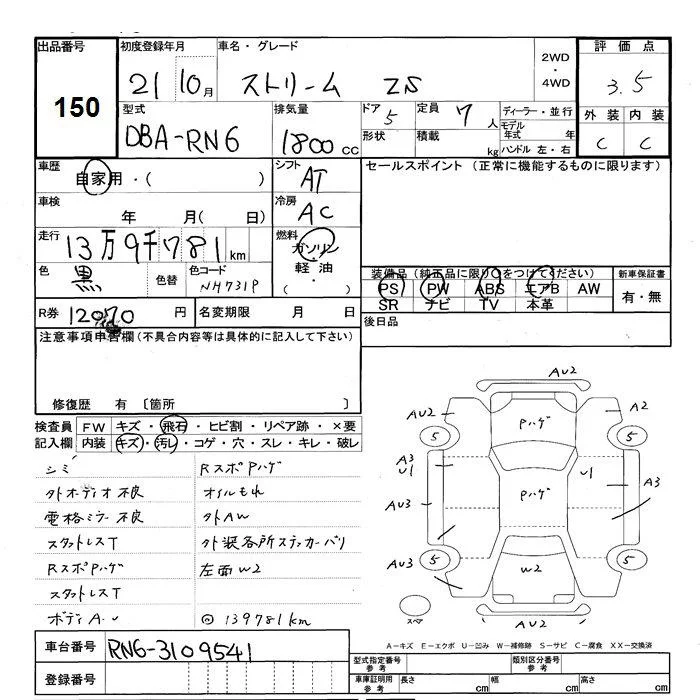 出品番号 初度登録年月 車名・グレード 2WD・4WD 評価点
150 21 10月 ストリーム ZS 3.5
型式 排気量 ドア 5 定員 7人 ディーラー・並行 外装 内装
DBA-RN6 1800cc 形状 積載 kg モデル年式 年 C C
ハンドル 左・右
車歴 自家用・( ) シフト AT セールスポイント (正常に機能するものに限ります)
車検 年 月( 日) 冷房 AC
走行 13万9千781km 燃料 ガソリン・軽油・( )
色 黒 色替 色コード NH731P 装備品 (純正品に限り○をつけてください) 新車保証書
PS PW ABS エアB AW 有・無
SR ナビ TV 本革
R券 12070円 名変期限 月 日 後日品
注意事項申告欄(不具合内容等は具体的に記入して下さい)
修復歴 有 〔箇所 〕
検査員 FW キズ・飛石・ヒビ割・リペア跡・×要
記入欄 内装 キズ・汚し・コゲ・穴・スレ・キレ・破レ
シミ RスポPハゲ
外オーディオ不良 オイルもれ
電格ミラー不良 外AW
スタットレスT 外装各所ステッカーバリ
RスポPハゲ 左面W2
スタットレスT
ボディA.U ◎139781km
AU2
AU2 Pハゲ A2
5 5
A3 U1 U1 A3
Pハゲ
AU3
AU3 5 W2 5
スペア AU2
A-キズ E-エクボ U-凹み W-補修跡 S-サビ C-腐食 XX-交換済
車台番号 RN6-3109541
登録番号
型式指定番号 参考 類別区分番号 参考
車庫証明用 参考 長さ cm 幅 cm 高さ cm